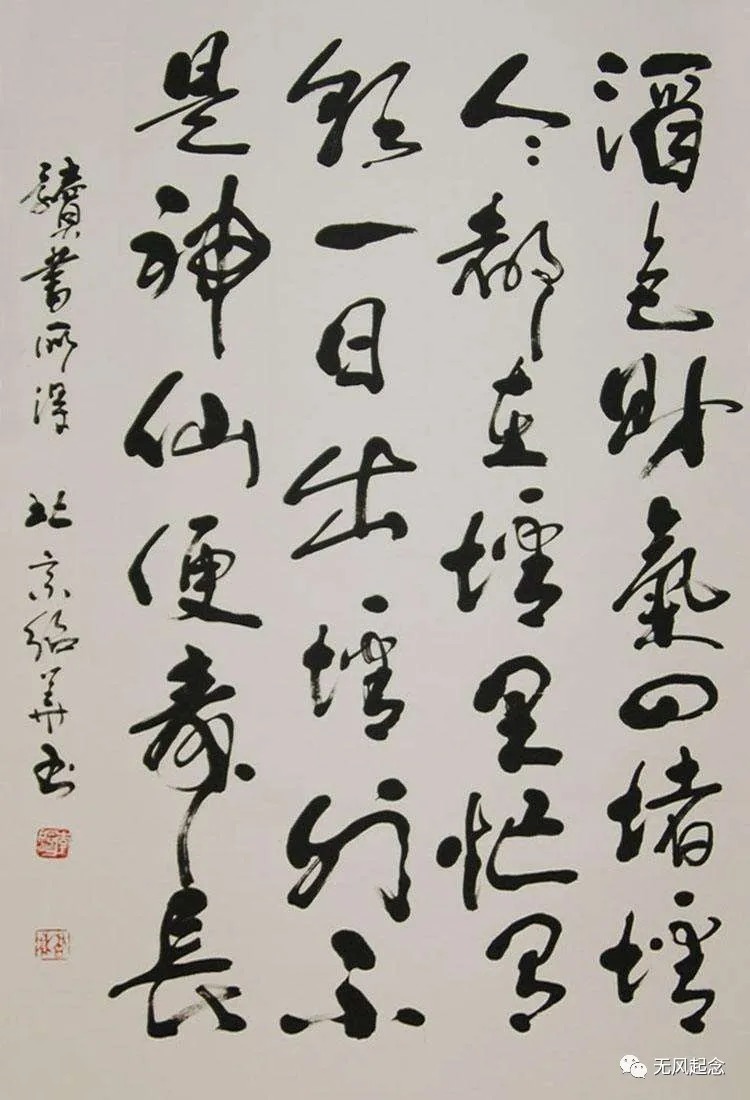 酒色財氣四堵墙
人々都在墙里忙若
能一日出墙外不
是神仙便寿長
讀書所得 北京紹華书
无风起念